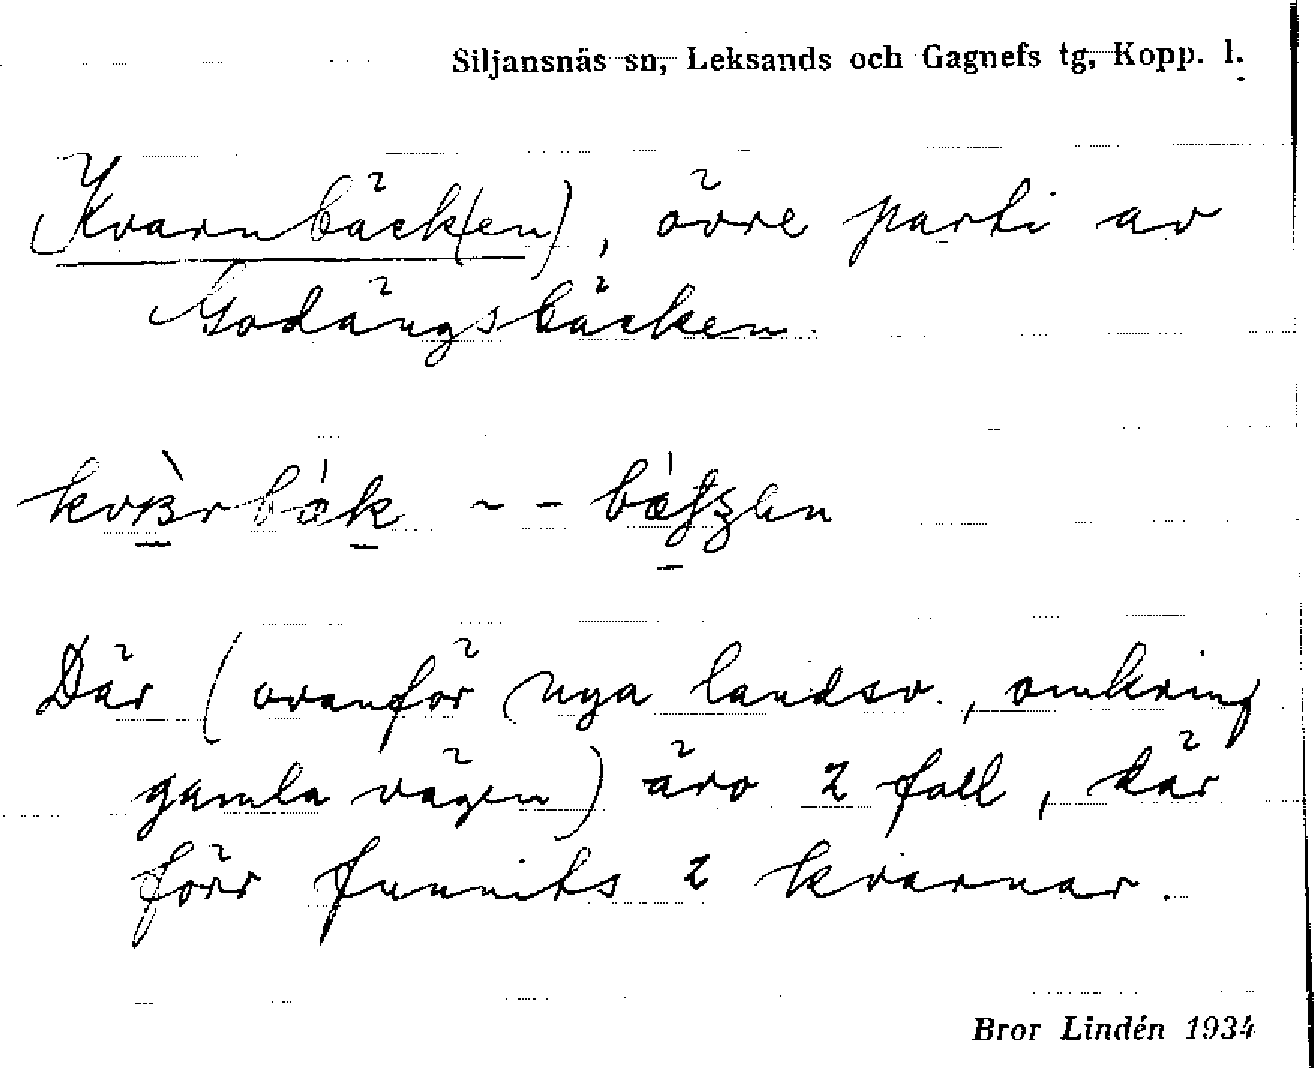 Siljansnäs sn, Leksands och Gagnefs tg, Kopp. l.
Kvarnbäck(en), övre parti av
Godängsbäcken.
Där (ovanför nya landsv., omkring
gamla vägen) äro 2 fall, där
förr funnits 2 kvarnar.
Bror Lindén 1934